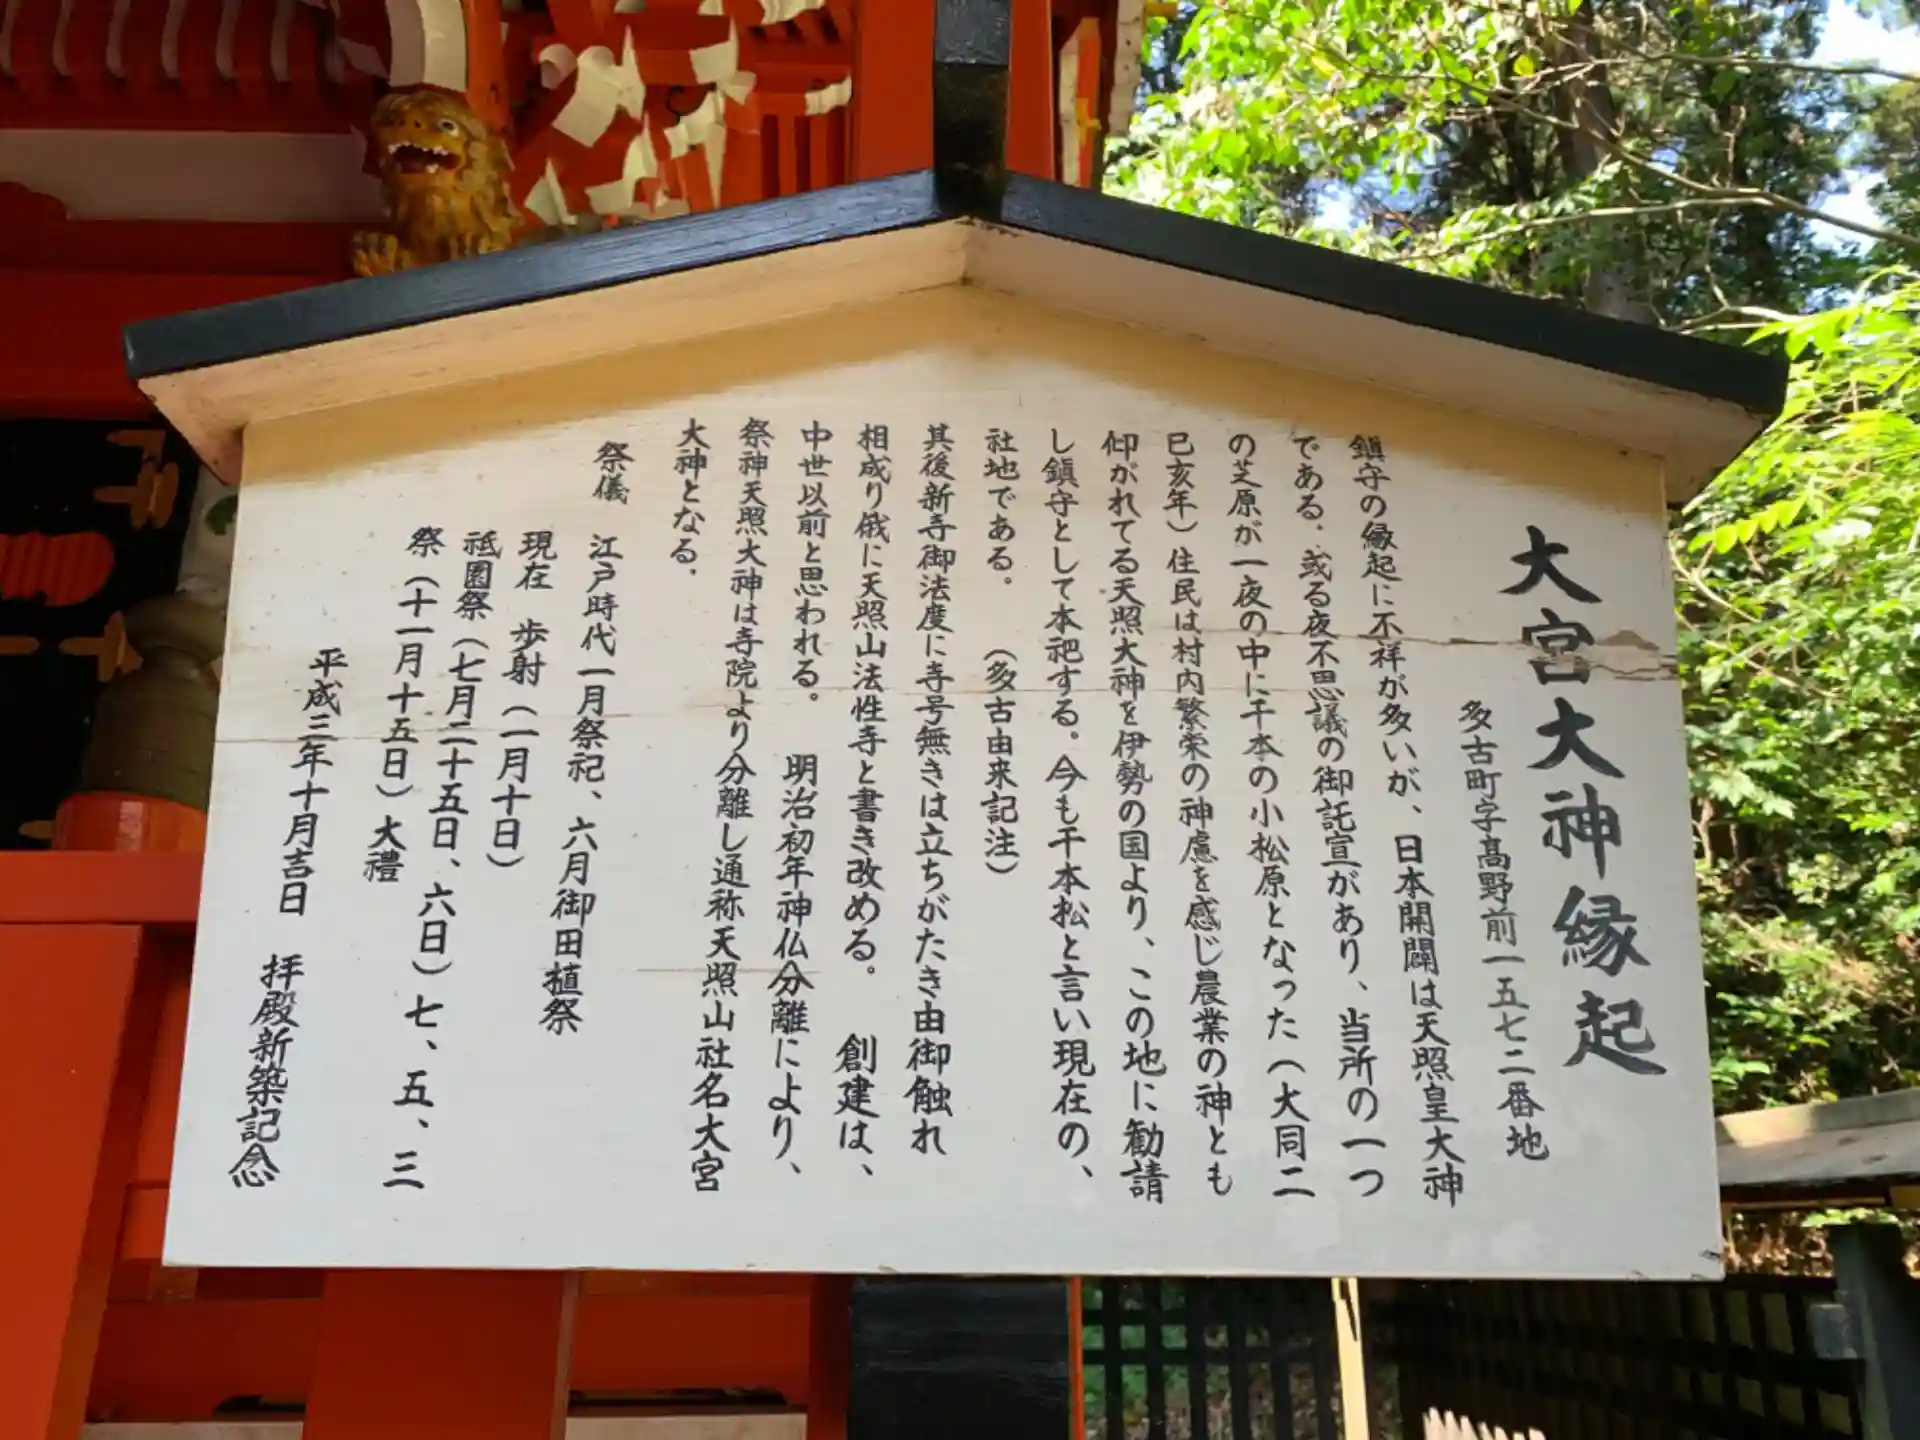 大宮大神縁起
多古町字髙野前一五七二番地
鎮守の縁起に不祥が多いが、日本開闢は天照皇大神
である。或る夜不思議の御託宣があり、当所の一つ
の芝原が一夜の中に千本の小松原となった（大同二
已亥年）住民は村内繁栄の神慮を感じ農業の神とも
仰がれてる天照大神を伊勢の国より、この地に勧請
し鎮守として本祀する。今も千本松と言い現在の、
社地である。　（多古由来記注）
其後新寺御法度に寺号無きは立ちがたき由御触れ
相成り俄に天照山法性寺と書き改める。　創建は、
中世以前と思われる。　明治初年神仏分離により、
祭神天照大神は寺院より分離し通称天照山社名大宮
大神となる．
祭儀　江戸時代一月祭祀、六月御田植祭
現在　歩射（一月十日）
祇園祭（七月二十五日、六日）七、五、三
祭（十一月十五日）大禮
平成三年十月吉日　拝殿新築記念